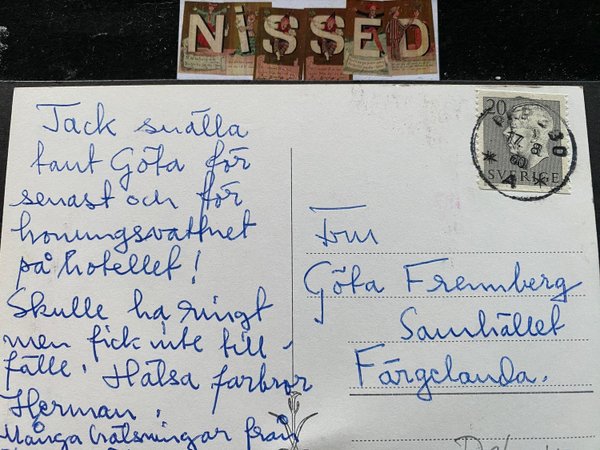 NiSSED
Tack snälla
tant Göta för
senast och för
honungsvattnet
på hotellet!
Skulle ha ringt
men fick inte till-
fälle. Hälsa farbror
Herman.
Många hälsningar från
20
SVERIGE
17. 8
60
4
Fru
Göta Fremberg
Samhället
Färgelanda.